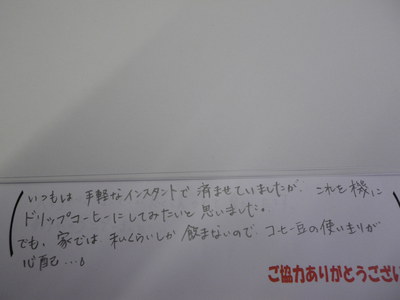 いつもは 手軽なインスタントで 済ませていましたが、これを機に
ドリップコーヒーにしてみたいと思いました。
でも、家では 私くらいしか 飲まないので、コーヒー豆の使いまりが
心配…。
ご協力ありがとうござい